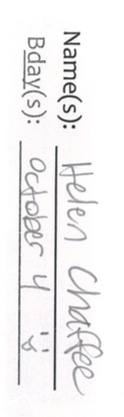 Name(s): Helen Chaffee
Bday(s): October 4 :)